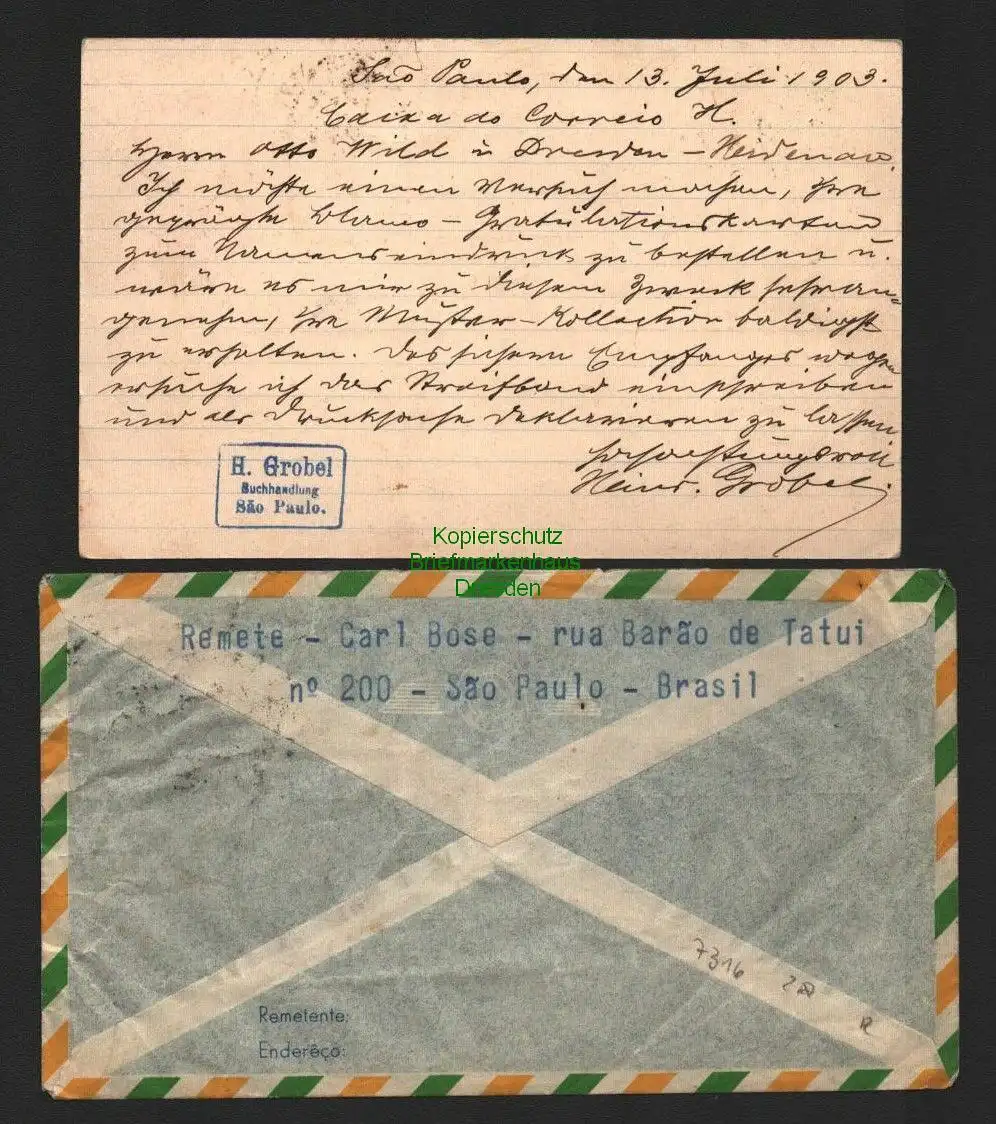 São Paulo, den 13. Juli 1903.
Caixa do Correio H.
Herrn Otto Wild in Dresden – Heidenau.
Ich möchte einen Versuch machen, Ihre
geprägte blanco – Gratulationskarten
zum Namenseindruck zu bestellen u.
wäre es mir zu diesem Zweck sehr an=
genehm, Ihre Muster-Kollection baldigst
zu erhalten. Des sichern Empfanges wegen
ersuche ich das Streifband einschreiben
und als Drucksache deklarieren zu lassen
Hochachtungsvoll
Heinr. Grobel.
H. Grobel
Buchhandlung
São Paulo.
Kopierschutz
Briefmarkenhaus
Dresden
Remete – Carl Bose – rua Barão de Tatui
nº 200 – São Paulo – Brasil
7316
R
Remetente:
Enderêço: